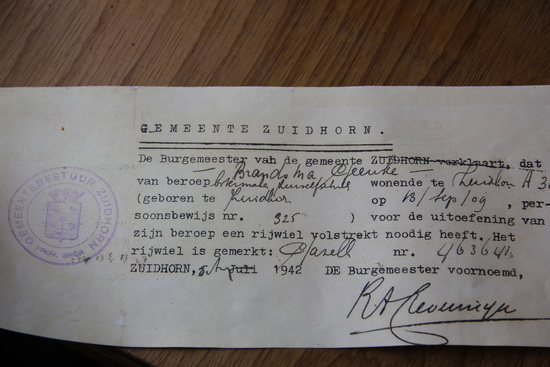 GEMEENTE ZUIDHORN.
De Burgemeester van de gemeente ZUIDHORN verklaart, dat
Brandsma
van beroep wonende te Zuidhorn A 3
(geboren te Zuidhorn op 13/Sep/09, per-
soonsbewijs nr. 325 ) voor de uitoefening van
zijn beroep een rijwiel volstrekt noodig heeft. Het
rijwiel is gemerkt: nr.
ZUIDHORN, Juli 1942 DE Burgemeester voornoemd,
GEMEENTEBESTUUR ZUIDHORN
PROV. GRON.